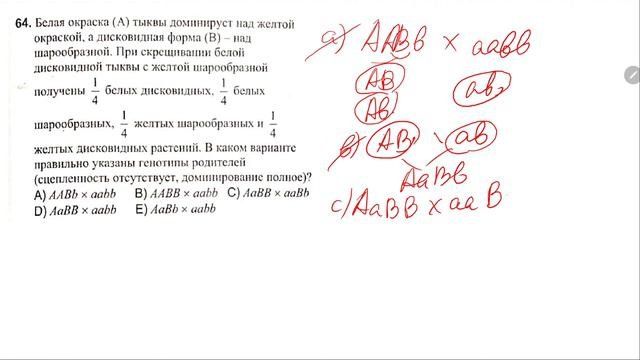 64. Белая окраска (А) тыквы доминирует над желтой
окраской, а дисковидная форма (В) – над
шарообразной. При скрещивании белой
дисковидной тыквы с желтой шарообразной
получены 1/4 белых дисковидных, 1/4 белых
шарообразных, 1/4 желтых шарообразных и 1/4
желтых дисковидных растений. В каком варианте
правильно указаны генотипы родителей
(сцепленность отсутствует, доминирование полное)?
A) AABb × aabb B) AABB × aabb C) AaBB × aaBb
D) AaBB × aabb E) AaBb × aabb
a) AABb × aabb
AB
Ab
ab
b) AB ab
AaBb
c) AaBB × aaB